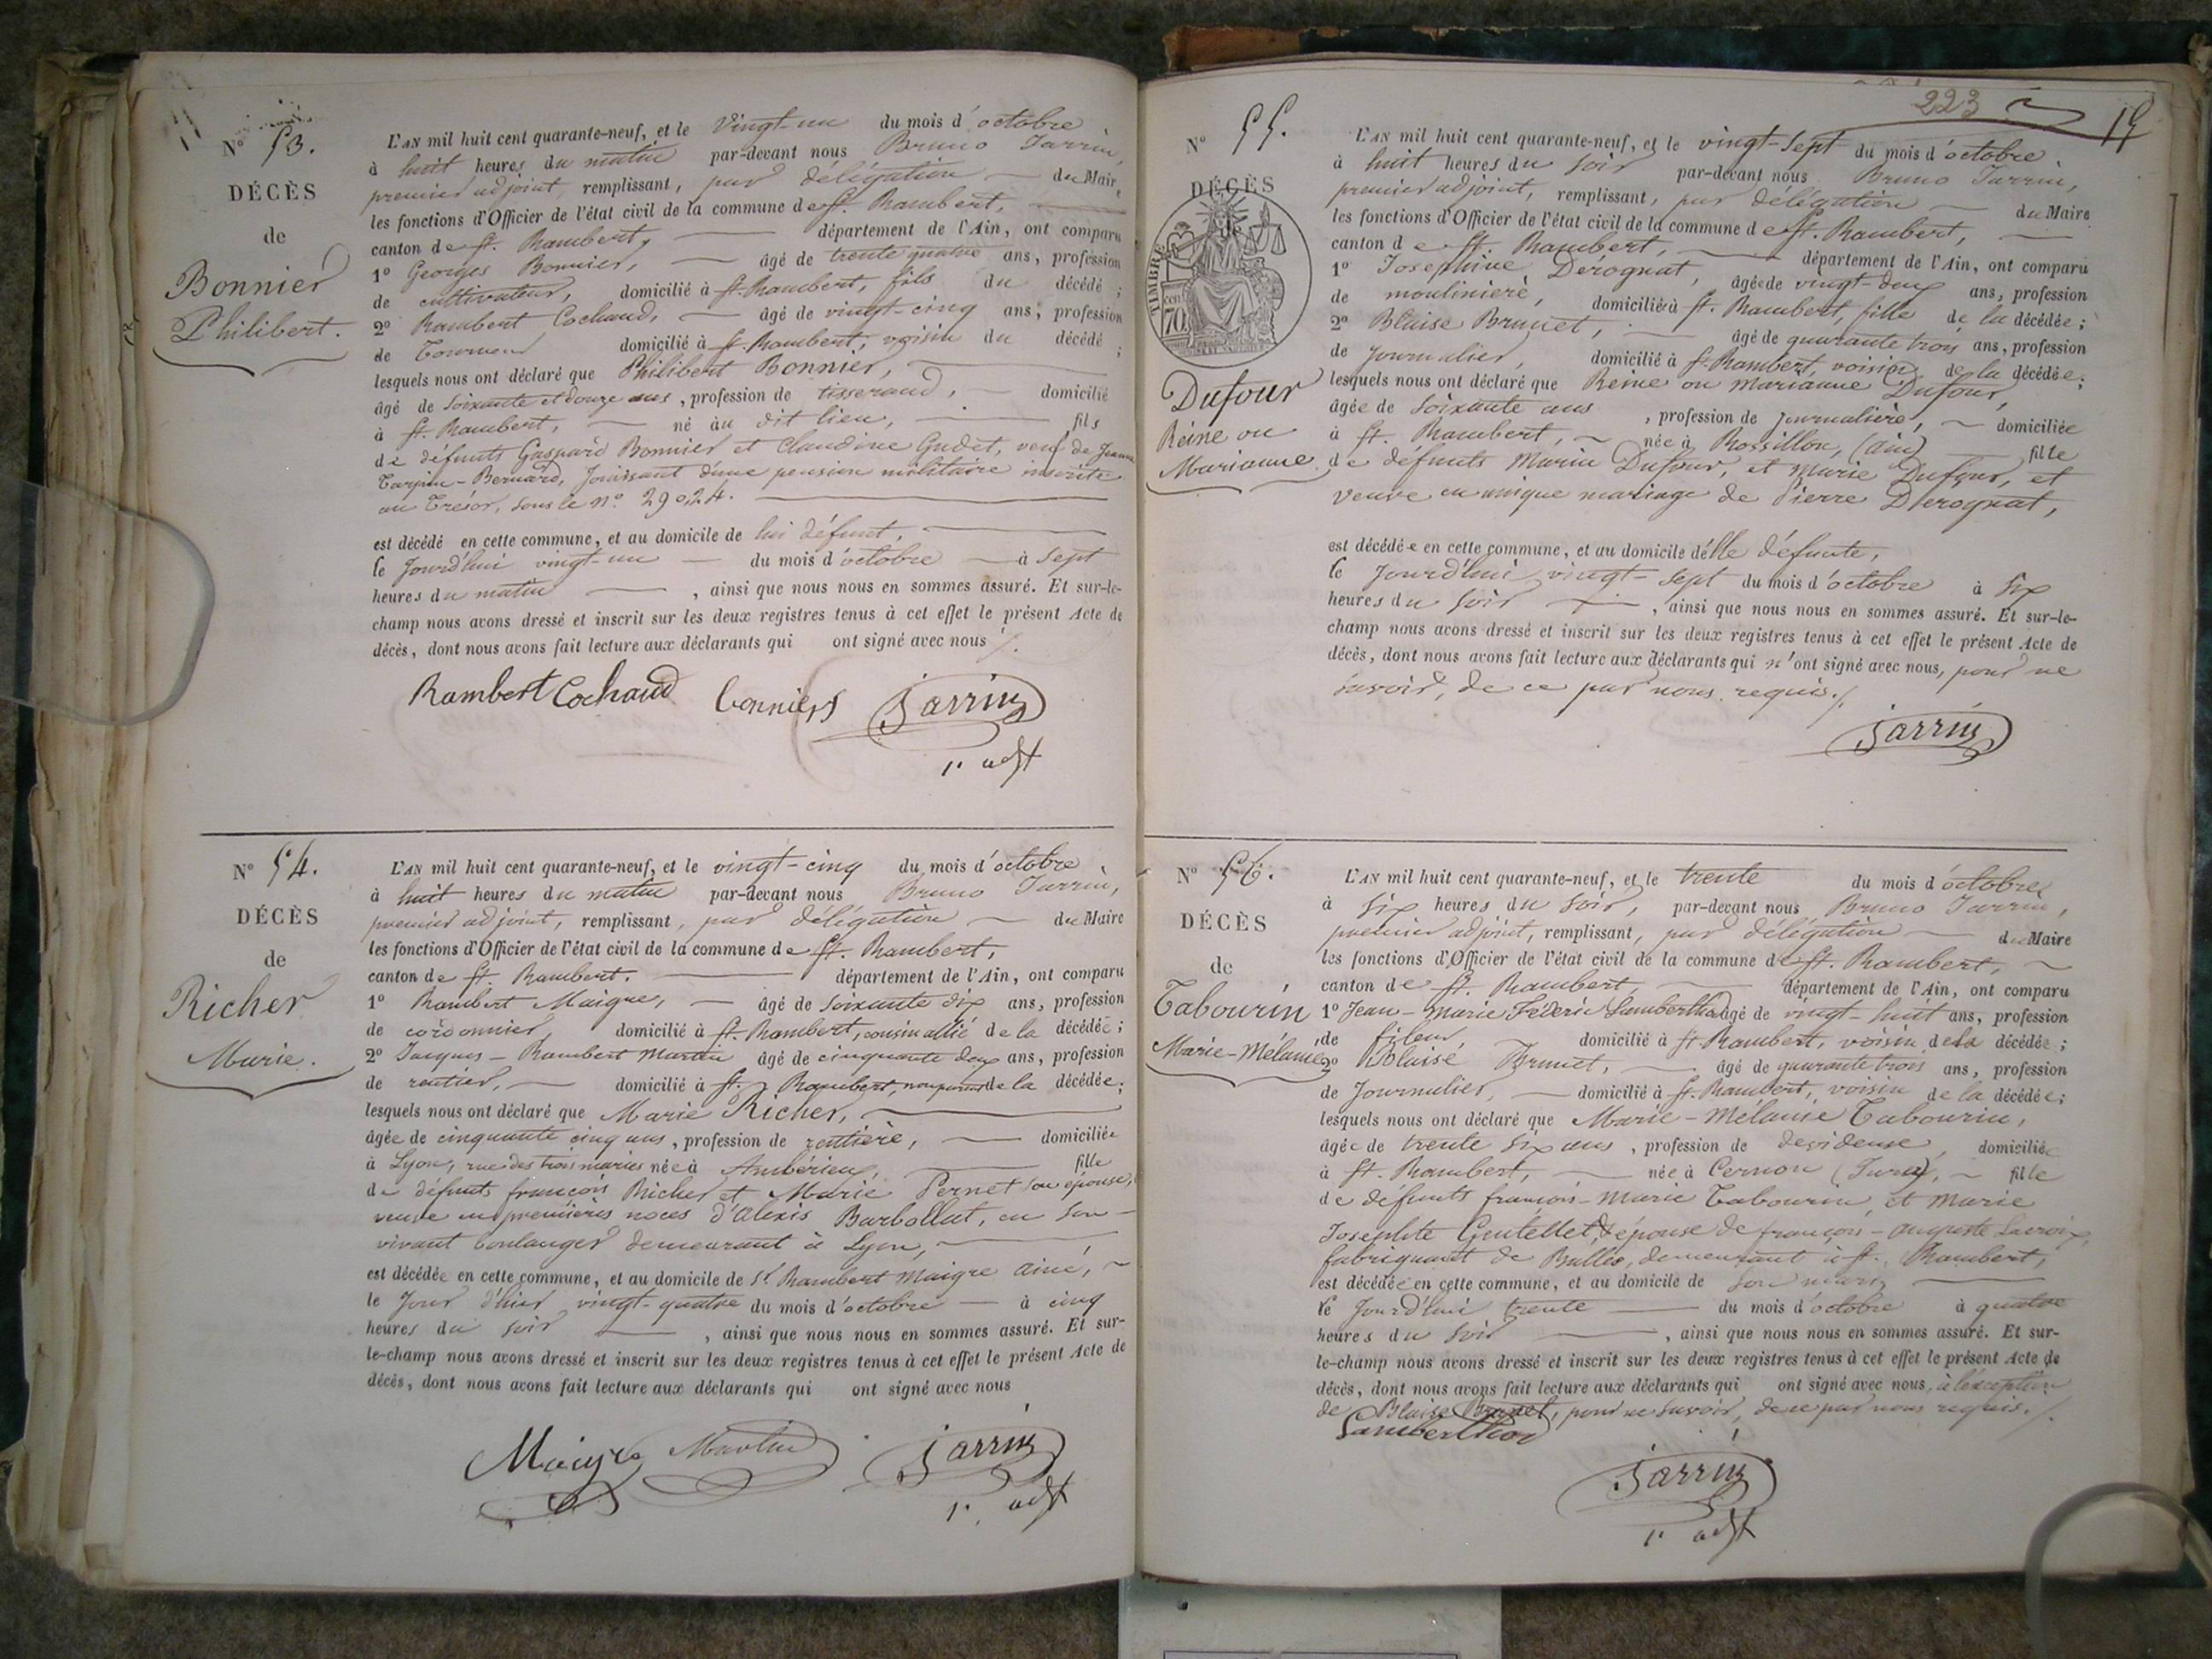 N° 53.
DÉCÈS
de
Bonnier
Philibert.
L'AN mil huit cent quarante-neuf, et le Vingt-un du mois d'octobre
à huit heures du matin par-devant nous Bruno Jarrin,
premier adjoint, remplissant, par délégation du Maire
les fonctions d'Officier de l'état civil de la commune de St. Rambert,
canton de St. Rambert, département de l'Ain, ont comparu
1° Georges Bonnier, âgé de trente quatre ans, profession
de cultivateur, domicilié à St. Rambert, fils du décédé ;
2° Rambert Cochaud, âgé de vingt-cinq ans, profession
de Tourneur domicilié à St. Rambert, voisin du décédé ;
lesquels nous ont déclaré que Philibert Bonnier,
âgé de soixante et douze ans, profession de tisserand, domicilié
à St. Rambert, né au dit lieu, fils
de défunts Gaspard Bonnier et Claudine Gudet, veuf de Jeanne
Tarpin-Bernard, Jouissant d'une pension militaire inscrite
au Trésor, sous le n° 29024.
est décédé en cette commune, et au domicile de lui défunt,
le Jourd'hui vingt-un du mois d'octobre à sept
heures du matin, ainsi que nous nous en sommes assuré. Et sur-le-
champ nous avons dressé et inscrit sur les deux registres tenus à cet effet le présent Acte de
décès, dont nous avons fait lecture aux déclarants qui ont signé avec nous /.
Rambert Cochaud bonniers Jarrin
1er adjt
N° 54.
DÉCÈS
de
Richer
Marie.
L'AN mil huit cent quarante-neuf, et le vingt-cinq du mois d'octobre
à huit heures du matin par-devant nous Bruno Jarrin,
premier adjoint, remplissant, par délégation du Maire
les fonctions d'Officier de l'état civil de la commune de St. Rambert,
canton de St. Rambert. département de l'Ain, ont comparu
1° Rambert Maigre, âgé de soixante dix ans, profession
de cordonnier, domicilié à St. Rambert, cousin allié de la décédée ;
2° Jacques-Rambert Martin âgé de cinquante deux ans, profession
de rentier, domicilié à St. Rambert, non parent de la décédée ;
lesquels nous ont déclaré que Marie Richer,
âgée de cinquante cinq ans, profession de rentière, domiciliée
à Lyon, rue des trois maries née à Ambérieux, fille
de défunts françois Richer et Marie Pernet son épouse,
veuve en premières noces d'Alexis Barbollat, en son
vivant boulanger demeurant à Lyon,
est décédée en cette commune, et au domicile de sr Rambert Maigre ainé,
le Jour d'hier vingt-quatre du mois d'octobre à cinq
heures du soir, ainsi que nous nous en sommes assuré. Et sur-
le-champ nous avons dressé et inscrit sur les deux registres tenus à cet effet le présent Acte de
décès, dont nous avons fait lecture aux déclarants qui ont signé avec nous
Maigre Martin Jarrin
1er adjt
223 15
N° 55.
DÉCÈS
TIMBRE
70
Dufour
Reine ou
Marianne
L'AN mil huit cent quarante-neuf, et le vingt-sept du mois d'octobre
à huit heures du soir par-devant nous Bruno Jarrin,
premier adjoint, remplissant, par délégation du Maire
les fonctions d'Officier de l'état civil de la commune de St. Rambert,
canton de St. Rambert, département de l'Ain, ont comparu
1° Josephine Dérognat, âgée de vingt-deux ans, profession
de moulinière, domiciliée à St. Rambert, fille de la décédée ;
2° Blaise Brunet, âgé de quarante trois ans, profession
de Journalier, domicilié à St. Rambert, voisin de la décédée ;
lesquels nous ont déclaré que Reine ou Marianne Dufour,
âgée de soixante ans, profession de Journalière, domiciliée
à St. Rambert, née à Rossillon, (ain) fille
de défunts Marin Dufour, et Marie Dufour, et
veuve en unique mariage de Pierre Derognat,
est décédée en cette commune, et au domicile d'elle défunte,
le Jourd'hui vingt-sept du mois d'octobre à six
heures du soir, ainsi que nous nous en sommes assuré. Et sur-le-
champ nous avons dressé et inscrit sur les deux registres tenus à cet effet le présent Acte de
décès, dont nous avons fait lecture aux déclarants qui n'ont signé avec nous, pour ne
savoir, de ce par nous requis./.
Jarrin
N° 56.
DÉCÈS
de
Tabourin
Marie-Mélanie
L'AN mil huit cent quarante-neuf, et le trente du mois d'octobre
à six heures du soir, par-devant nous Bruno Jarrin,
premier adjoint, remplissant, par délégation du Maire
les fonctions d'Officier de l'état civil de la commune de St. Rambert,
canton de St. Rambert, département de l'Ain, ont comparu
1° Jean-Marie Féderic Lamberthod âgé de vingt-huit ans, profession
de fileur domicilié à St. Rambert, voisin de la décédée ;
2° Blaise Brunet, âgé de quarante trois ans, profession
de Journalier, domicilié à St. Rambert, voisin de la décédée ;
lesquels nous ont déclaré que Marie-Melanie Tabourin,
âgée de trente six ans, profession de devideuse, domiciliée
à St. Rambert, née à Cernon (Jura), fille
de défunts françois-Marie Tabourin, et Marie
Josephte Gentellet, épouse de françois-auguste Lacroix,
fabriquant de Bulles, demeurant à St. Rambert,
est décédée en cette commune, et au domicile de son mari,
le Jourd'hui trente du mois d'octobre à quatre
heures du soir, ainsi que nous nous en sommes assuré. Et sur-
le-champ nous avons dressé et inscrit sur les deux registres tenus à cet effet le présent Acte de
décès, dont nous avons fait lecture aux déclarants qui ont signé avec nous, à l'exception
de Blaise Brunet, pour ne savoir, de ce par nous requis./.
Lamberthod
Jarrin
1er adjt